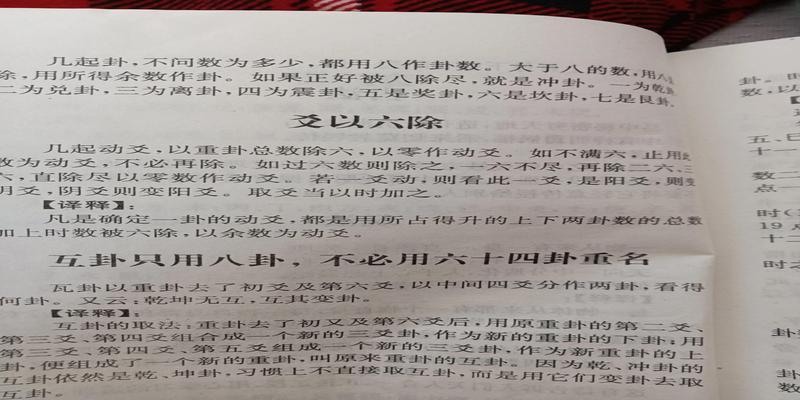 几起卦，不问数为多少，都用八作卦数。大于八的数，用八
除，用所得余数作卦。如果正好被八除尽，就是冲卦。一为乾卦，
二为兑卦，三为离卦，四为震卦，五是奖卦，六是坎卦，七是艮卦，
爻以六除
几起动爻，以重卦总数除六，以零作动爻。如不满六，止用此
数为动爻，不必再除。如过六数则除之，一六不尽，再除二六、三
六，直除尽以零数作动爻。若一爻动，则看此一爻，是阳爻，则变
阴爻，阴爻则变阳爻。取爻当以时加之。
【译释】：
凡是确定一卦的动爻，都是用所占得升的上下两卦数的总数
加上时数被六除，以余数为动爻。
互卦只用八卦，不必用六十四卦重名
瓦卦以重卦去了初爻及第六爻，以中间四爻分作两卦，看得
何卦。又云：乾坤无互，互其变卦。
【译释】：
互卦的取法：重卦去了初又及第六爻后，用原重卦的第二爻、
第三爻、第四爻组合成一个新的三爻卦，作为新的重卦的下卦；用
第三爻、第四爻、第五爻组成一个新的三爻卦，作为新重卦的上
卦，便组成了一个新的重卦，叫原来重卦的互卦。因为乾、冲卦的
互卦依然是乾、坤卦，习惯上不直接取互卦，而是用它们变卦去取
互卦。
卦。时
数，以
五、巳
十一
数二
点一
时(
19
十二
时之
卦
卦
数